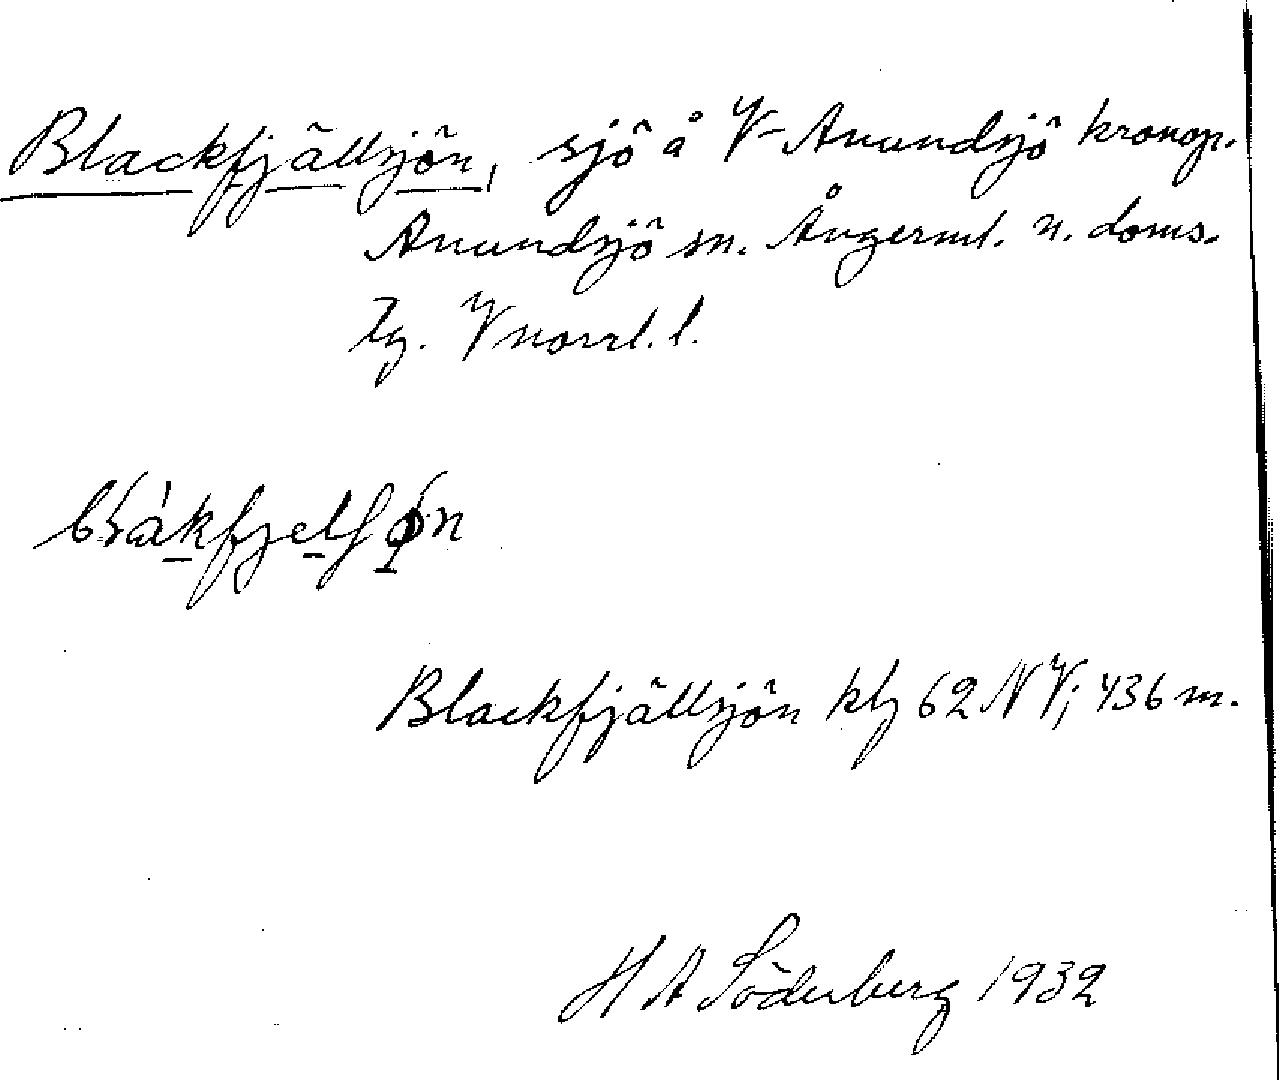 Blackfjällsjön, sjö å V-Anundsjö kronop.
Anundsjö sn. Ångerml. n. doms.
tg. Vnorrl. l.
Blackfjällsjön kbg 62 NV; 436 m.
H A Söderberg 1932